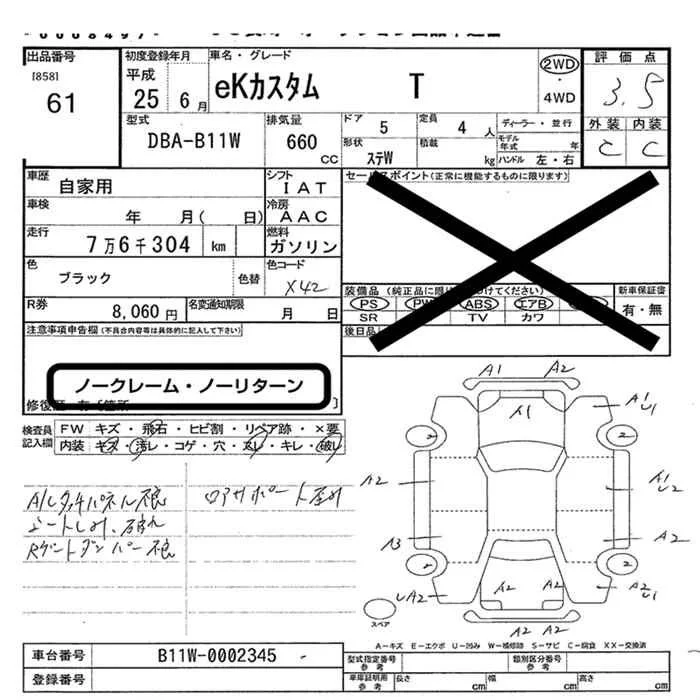 出品番号
[858]
61
初度登録年月
平成
25年6月
車名・グレード
eKカスタム T
2WD
・
4WD
評価点
3.5
外装 内装
C C
型式
DBA-B11W
排気量
660
CC
ドア
5
定員
4人
形状
ステW
積載
kg
ディーラー・並行
モデル年式 年
ハンドル 左・右
車歴
自家用
シフト
IAT
車検
年 月( 日)
冷房
AAC
走行
7万6千304 km
燃料
ガソリン
色
ブラック
色替
色コード
X42
R券
8,060円
名変通知期限
月 日
セールスポイント(正常に機能するものに限ります)
PS PW ABS エアB
SR TV カワ
後日品
新車保証書
有・無
注意事項申告欄(不具合内容等は具体的に記入して下さい)
ノークレーム・ノーリターン
検査員
記入欄
FW キズ・飛石・ヒビ割・リペア跡・×要
内装 キズ・汚レ・コゲ・穴・スレ・キレ・破レ
A/Cタッチパネル不良
シートしみ、破れ
Rゲートダンパー不良
ロアサポート歪み
A1 A2
A1
A1
U1
2 2
A2
A1
U2
A3
A2
2 2
UA2
A2 A2
A2
U1
A2 A2
スペア
A−キズ E−エクボ U−凹み W−補修跡 S−サビ C−腐食 XX−交換済
車台番号
B11W-0002345
登録番号
型式指定番号
参考
類別区分番号
参考
車庫証明用
参考
長さ cm
幅 cm
高さ cm